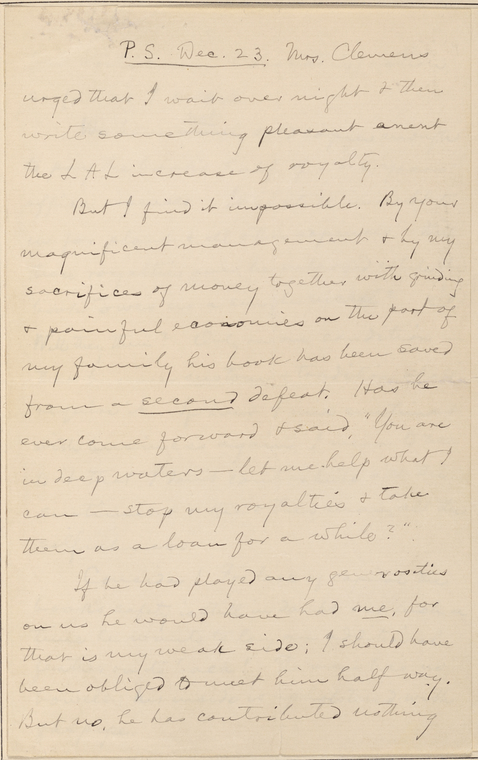 P.S. Dec. 23. Mrs. Clemens
urged that I wait over night & then
write something pleasant anent
the LAL increase of royalty.
But I find it impossible. By your
magnificent management & by my
sacrifices of money together with grinding
& painful economies on the part of
my family his book has been saved
from a second defeat. Has he
ever come forward & said, "You are
in deep waters — let me help what I
can — stop my royalties & take
them as a loan for a while?"
If he had played any generosities
on us he would have had me, for
that is my weak side; I should have
been obliged to meet him half way.
But no, he has contributed nothing